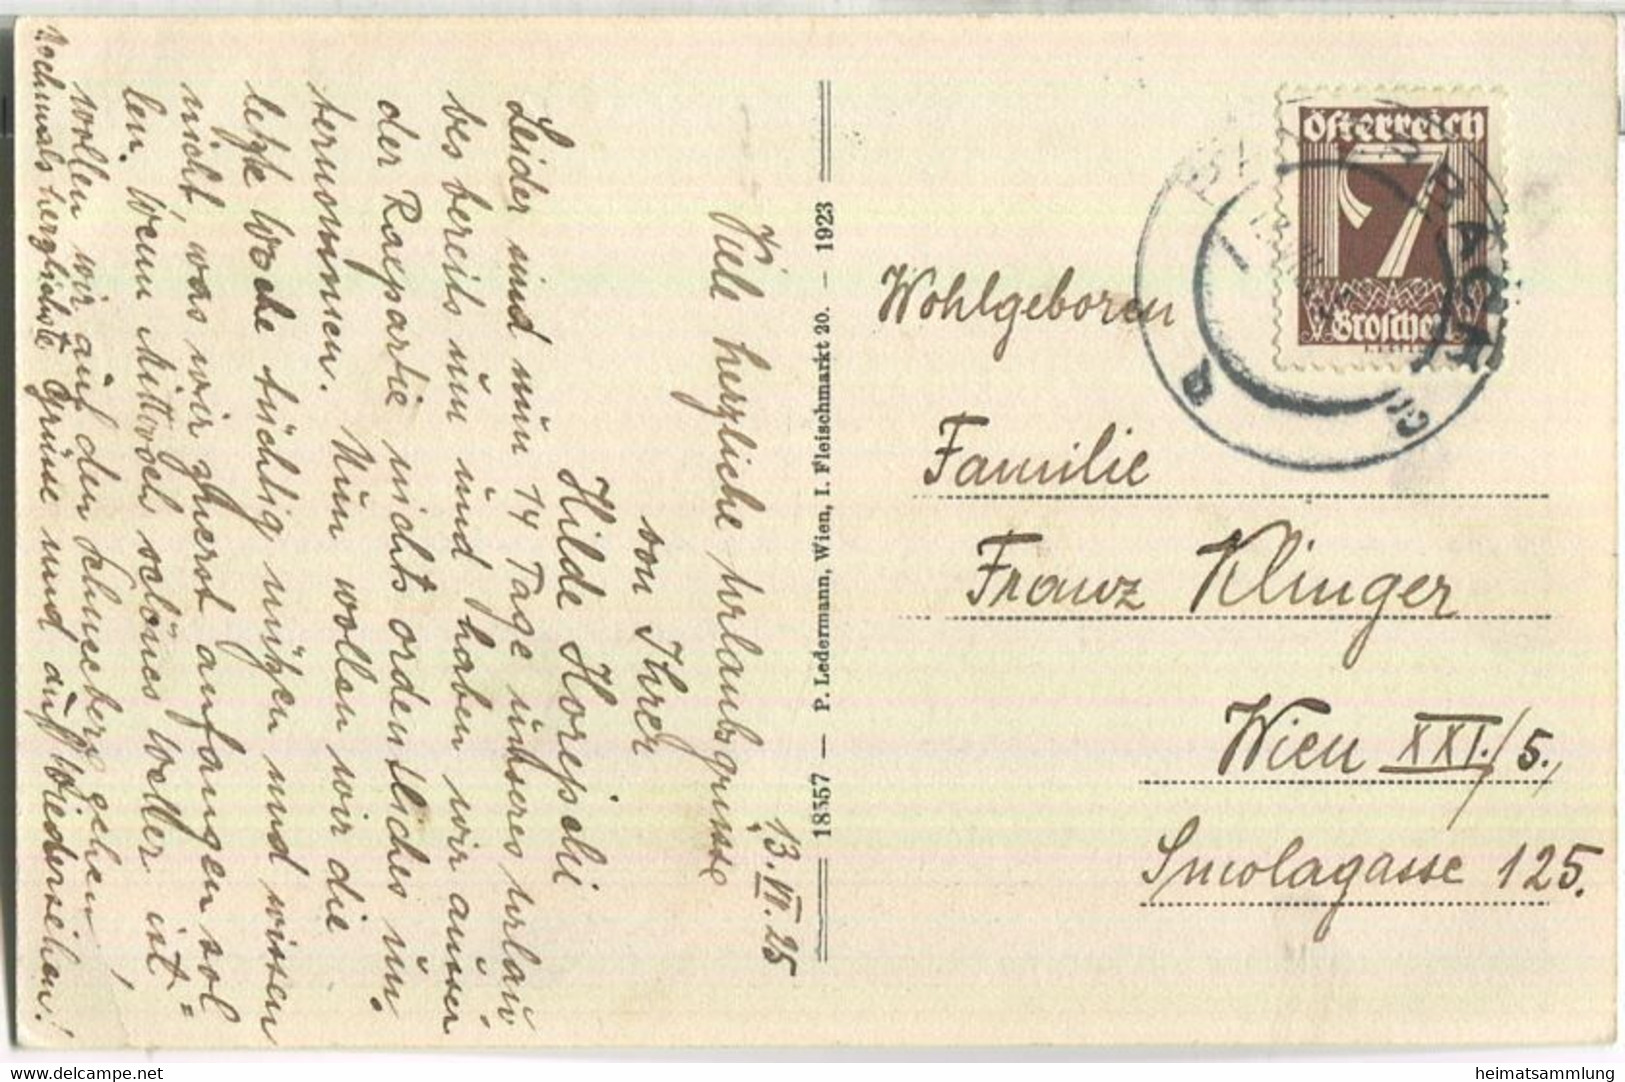 13. VII. 25
Viele herzliche Urlaubsgrüsse
von Ihrer
Hilde
Leider sind nun 14 Tage unseres Urlau-
bes bereits um und haben wir ausser
der Raxpartie nichts ordentliches un-
ternommen. Nun wollen wir die
letzte Woche tüchtig nützen und wissen
nicht, was wir zuerst anfangen sol=
len. Wenn Mittwoch schönes Wetter ist,
wollen wir auf den Schneeberg gehen.
Nochmals herzlichste Grüsse und auf Wiedersehen!
18557 — P. Ledermann, Wien, I. Fleischmarkt 20. — 1923
Österreich
7
Groschen
Wohlgeboren
Familie
Franz Klinger
Wien XXI./5.,
Smolagasse 125.
delcampe.net
heimatsammlung